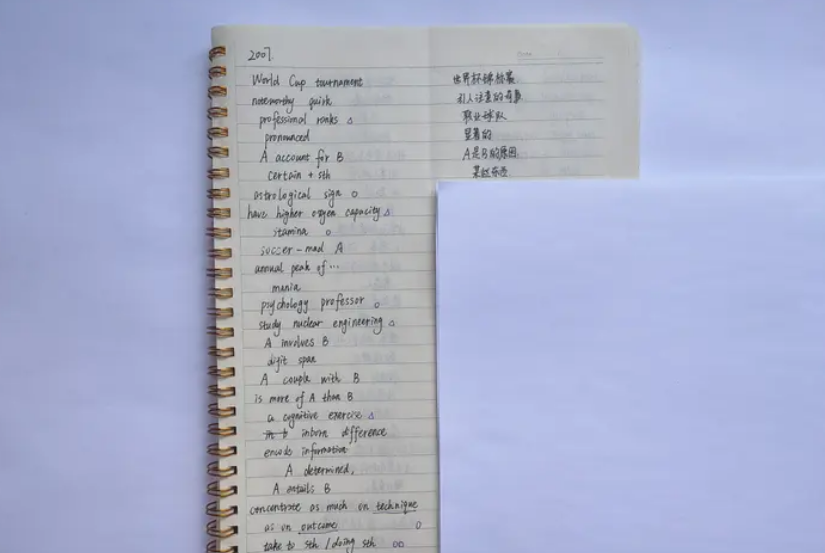 2007.
World Cup tournament 世界杯锦标赛
noteworthy quirk 引人注意的有趣
professional ranks △ 职业球队
pronounced 显著的
A account for B A是B的原因
certain + sth 某些东西
astrological sign ○
have higher oxygen capacity △
stamina ○
soccer-mad A
annual peak of …
mania
psychology professor ○
study nuclear engineering △
A involves B
digit span
A couple with B
is more of A than B
a cognitive exercise △
inborn difference
encode information
A determined.
A entails B
concentrate as much on technique
as on outcome ○
take to sth / doing sth ○○